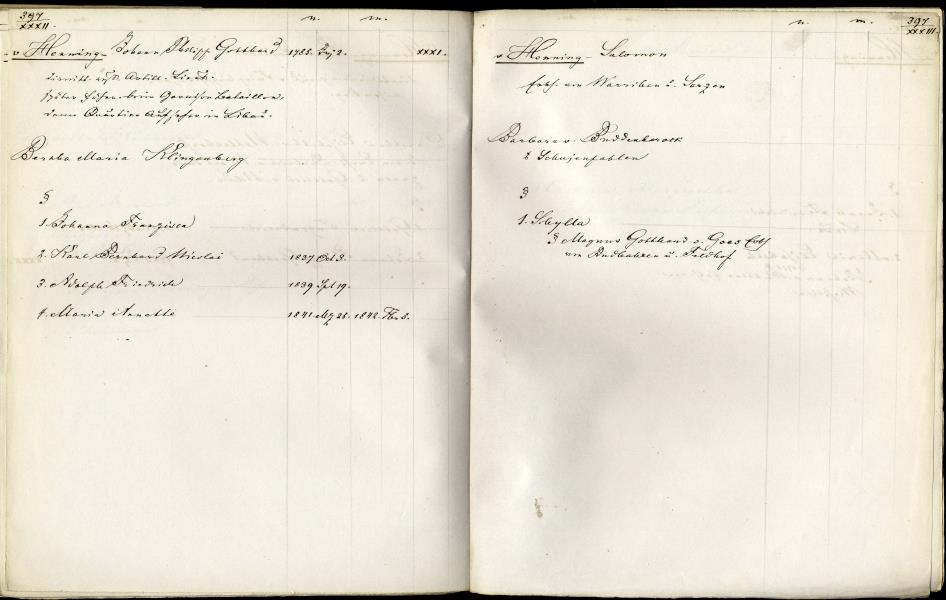 397
XXXII.
n. m.
v Henning Johann Philipp Gotthard 1788. XXXI.
dimitt. Artill. Lieut.
später beim Garnison Bataillon,
dann Quartier Aufseher in Libau.
Bertha Maria Klingenberg
§
1. Johanna Francisca
2. Karl Bernhard Nicolai 1837 Oct 3.
3. Adolph Friedrich 1839 Spt 19.
4. Maria Annette 1841 Mz 28. 1842. Fbr. 3.
n. m. 397
XXXIII.
v Henning Salomon
Erbh. von Warriben u.
Barbara v. Buddenbrock
a Schujenpahlen
§
1. Sibylla
§ Magnus Gotthard v. Goes Erbh
von u. Feldhof